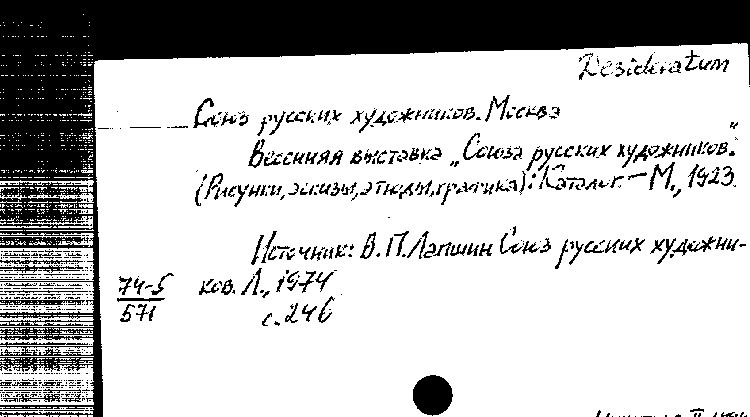 Desideratum
Союз русских художников. Москва
Весенняя выставка „Союза русских художников".
(Рисунки, эскизы, этюды, графика): Каталог. — М., 1923.
Источник: В.П. Лапшин Союз русских художни-
74-5 ков. Л., 1974
571 с. 246